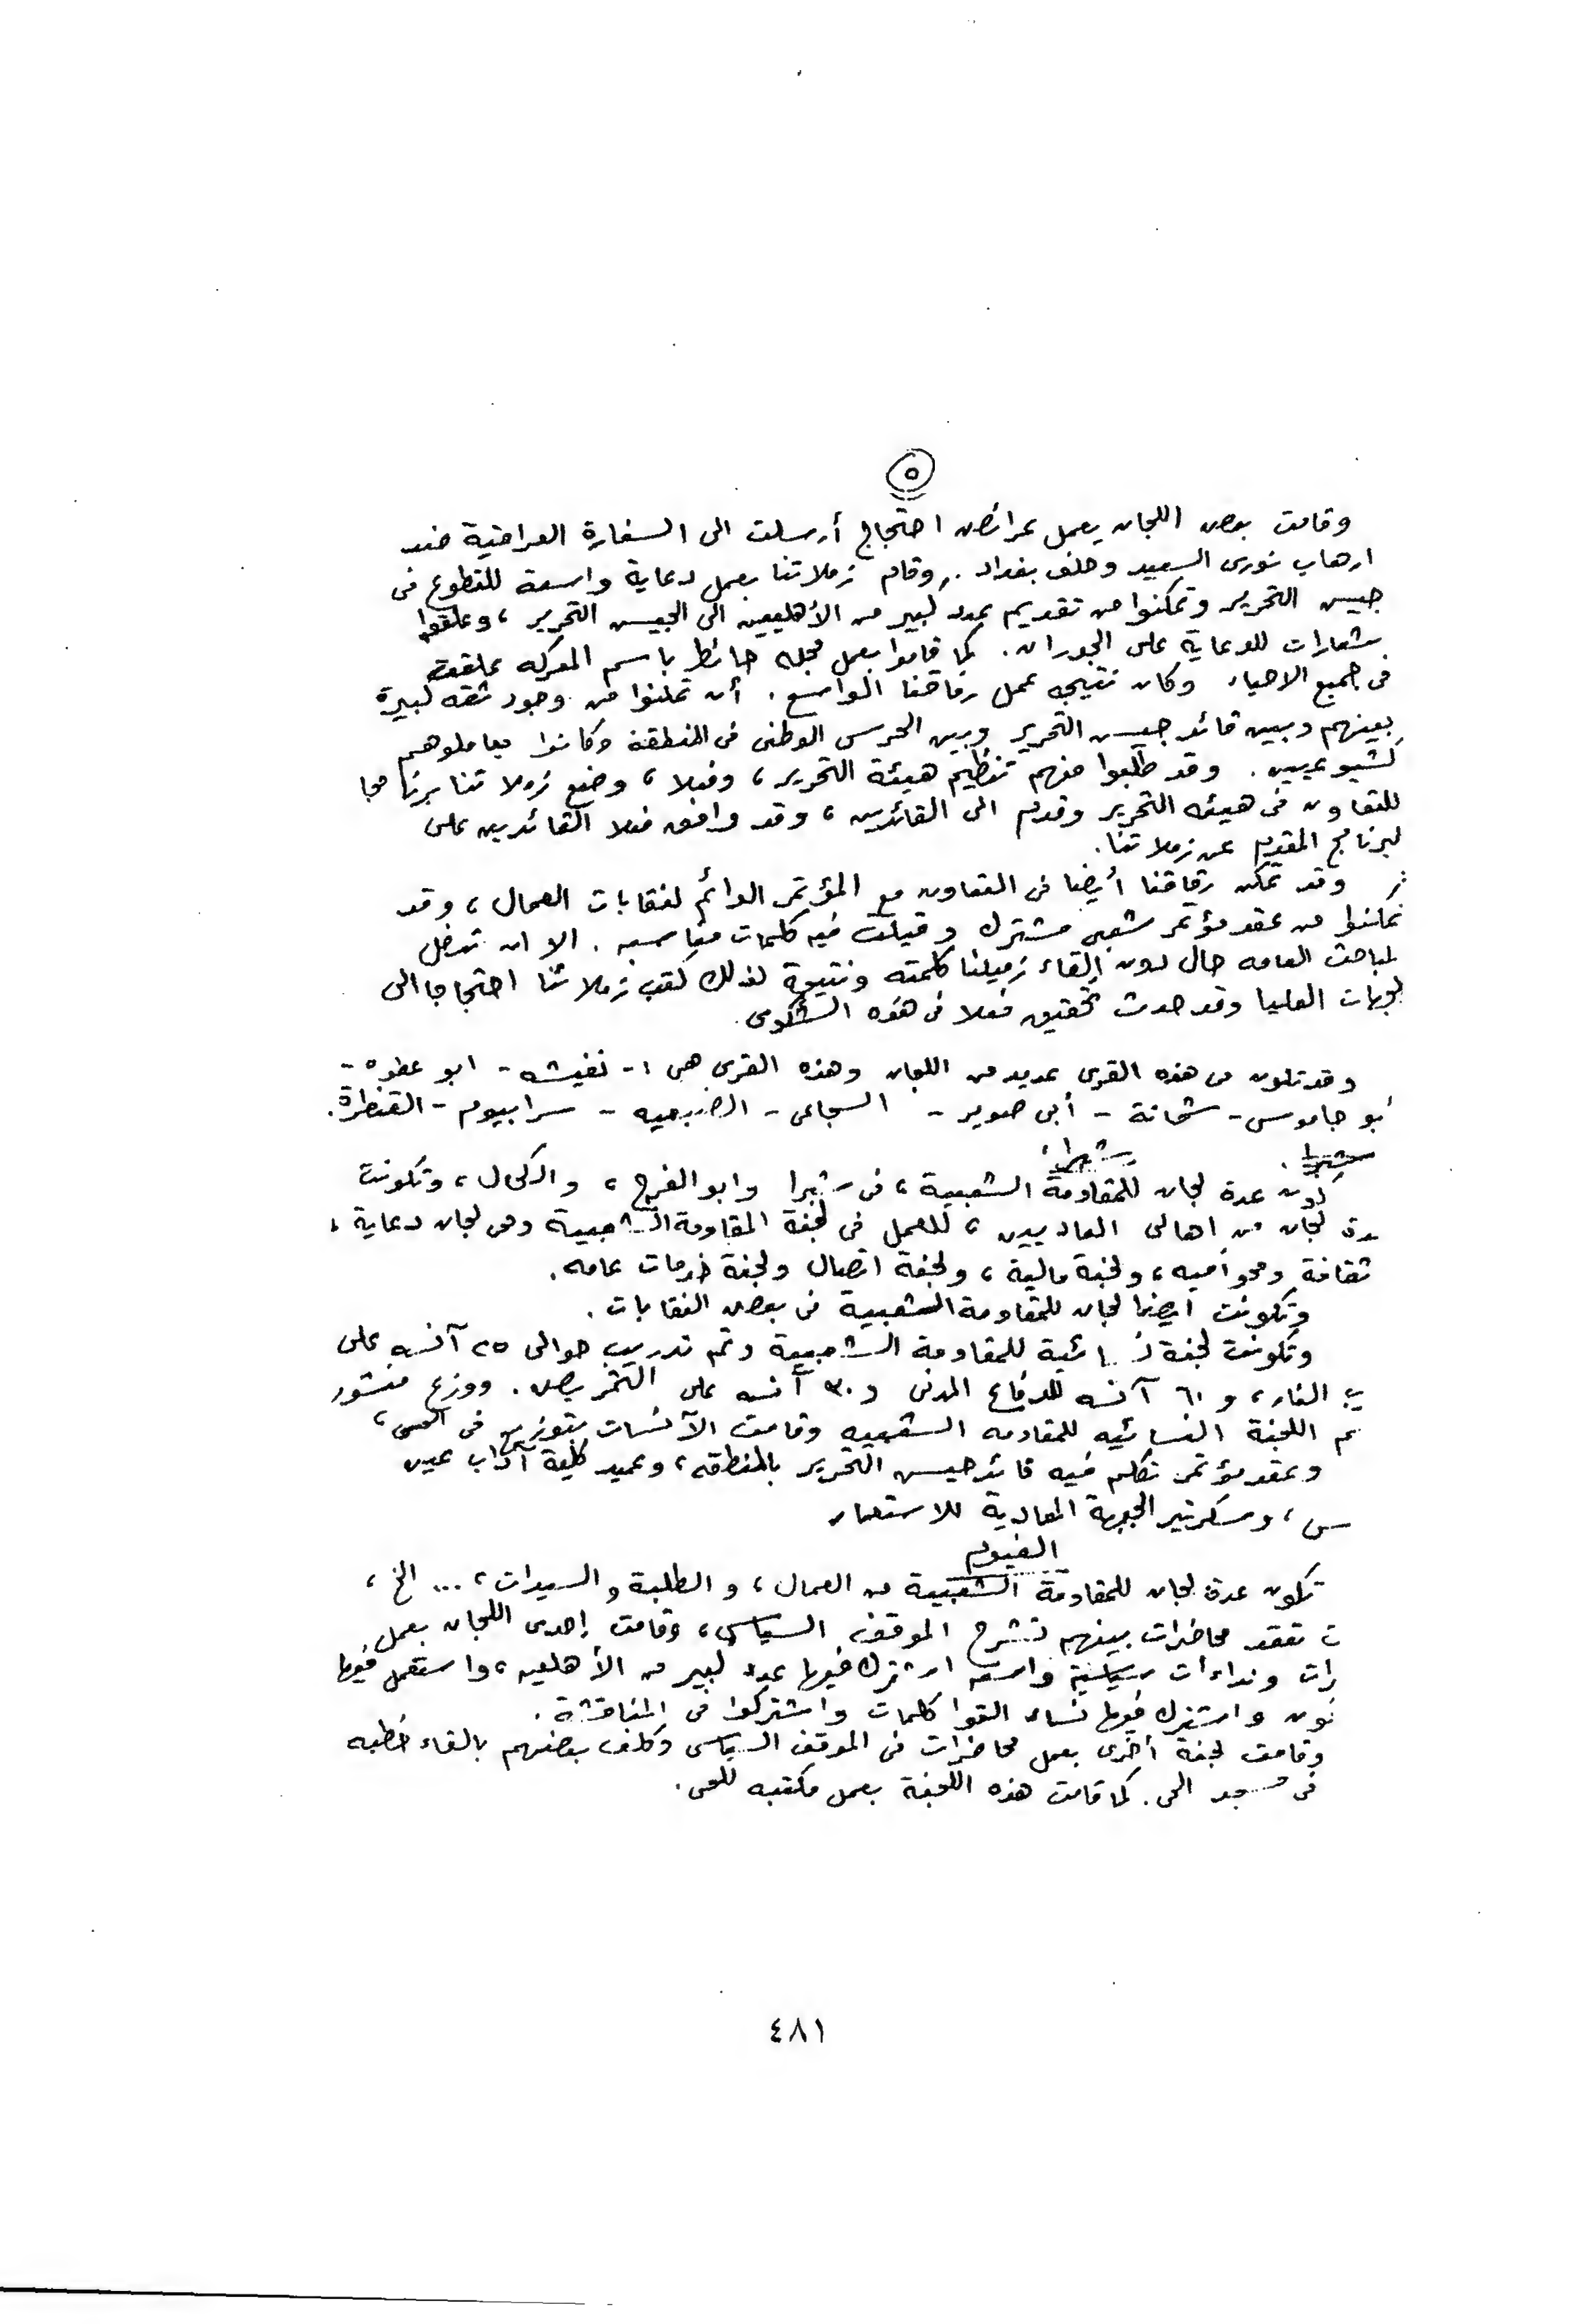 ٥
وقامت بعض اللجان بعمل عرائض احتجاج أرسلت الى السفارة العراقية ضد
ارهاب نورى السعيد وحلف بغداد . وقام زملاتنا بعمل دعاية واسعة للتطوع فى
جيش التحرير وتمكنوا من تقديم عدد كبير من الأهليين الى الجيش التحرير ، وعلقوا
شعارات للدعاية على الجدران . كما قاموا بعمل مجله حائط باسم المعركه علقت
فى جميع الاحياء وكان نتيجه عمل رفاقنا الواسع . أن تمكنوا من وجود ثقه كبيرة
بينهم وبين قائد جيش التحرير وبين الحرس الوطنى فى المنطقة وكانوا يعاملوهم
كشيوعيين . وقد طلبوا منهم تنظيم هيئة التحرير ، وفعلا ، وضع زملاتنا برنامجا
للتعاون فى هيئه التحرير وقدم الى القائدين ، وقد وافق فعلا القائدين على
لبرنامج المقدم عن زملاتنا .
وقد تمكن رفاقنا أيضا فى التعاون مع المؤتمر الدائم لنقابات العمال ، وقد
تمكنوا من عقد مؤتمر شعبى مشترك وقيلت فيه كلمات مناسبه . الا ان تدخل
لمباحث العامه حال دون إلقاء زميلنا كلمته ونتيجة لذلك كتب زملاتنا احتجاجا الى
لجهات العليا وقد حدث تحقيق فعلا فى هذه الشكوى .
وقد تكون من هذه القرى عديد من اللجان وهذه القرى هى :- نفيشه - ابو عطوه -
أبو جاموس - شحاتة - أبى صوير - السجاعى - الضبعيه - سرابيوم - القنطرة .
شبرا
شبرا .
كون عدة لجان للمقاومة الشعبية ، فى شبرا وابو الفرج ، والكحال ، وتكونت
دة لجان من اهالى العاديين ، للعمل فى لجنة المقاومة الشعبية وهى لجان دعاية ،
ثقافة ومحو أميه ، ولجنة مالية ، ولجنة اتصال ولجنة خدمات عامه .
وتكونت أيضا لجان للمقاومة الشعبية فى بعض النقابات .
وتكونت لجنة نسائية للمقاومة الشعبية وتم تدريب حوالى ٢٥ آنسه على
ب النار ، و ٦٠ آنسه للدفاع المدنى و ٣٠ آنسه على التمريض . ووزع منشور
سم اللجنة النسائيه للمقاومه الشعبيه وقامت الآنسات بتوزيعه فى الحى ،
وعقد مؤتمر تكلم فيه قائد جيش التحرير بالمنطقه ، وعميد كلية آداب عين
س ، وسكرتير الجبهة المعادية للاستعمار
الفيوم
تكون عدة لجان للمقاومة الشعبية من العمال ، و الطلبة و السيدات ، ... الخ ،
ت تعقد محاضرات بينهم تشرح الموقف السياسى ، وقامت إحدى اللجان بعمل
رات ونداءات سياسية واسعه اشترك فيها عدد كبير من الأهليه ، واستعمل فيها
نون واشترك فيها نساء القوا كلمات واشتركوا فى المناقشة .
وقامت لجنة أخرى بعمل محاضرات فى الموقف السياسى وكلف بعضهم بالقاء خطبه
فى مسجد الحى . كما قامت هذه اللجنة بعمل مكتبه للحى .
٤٨١